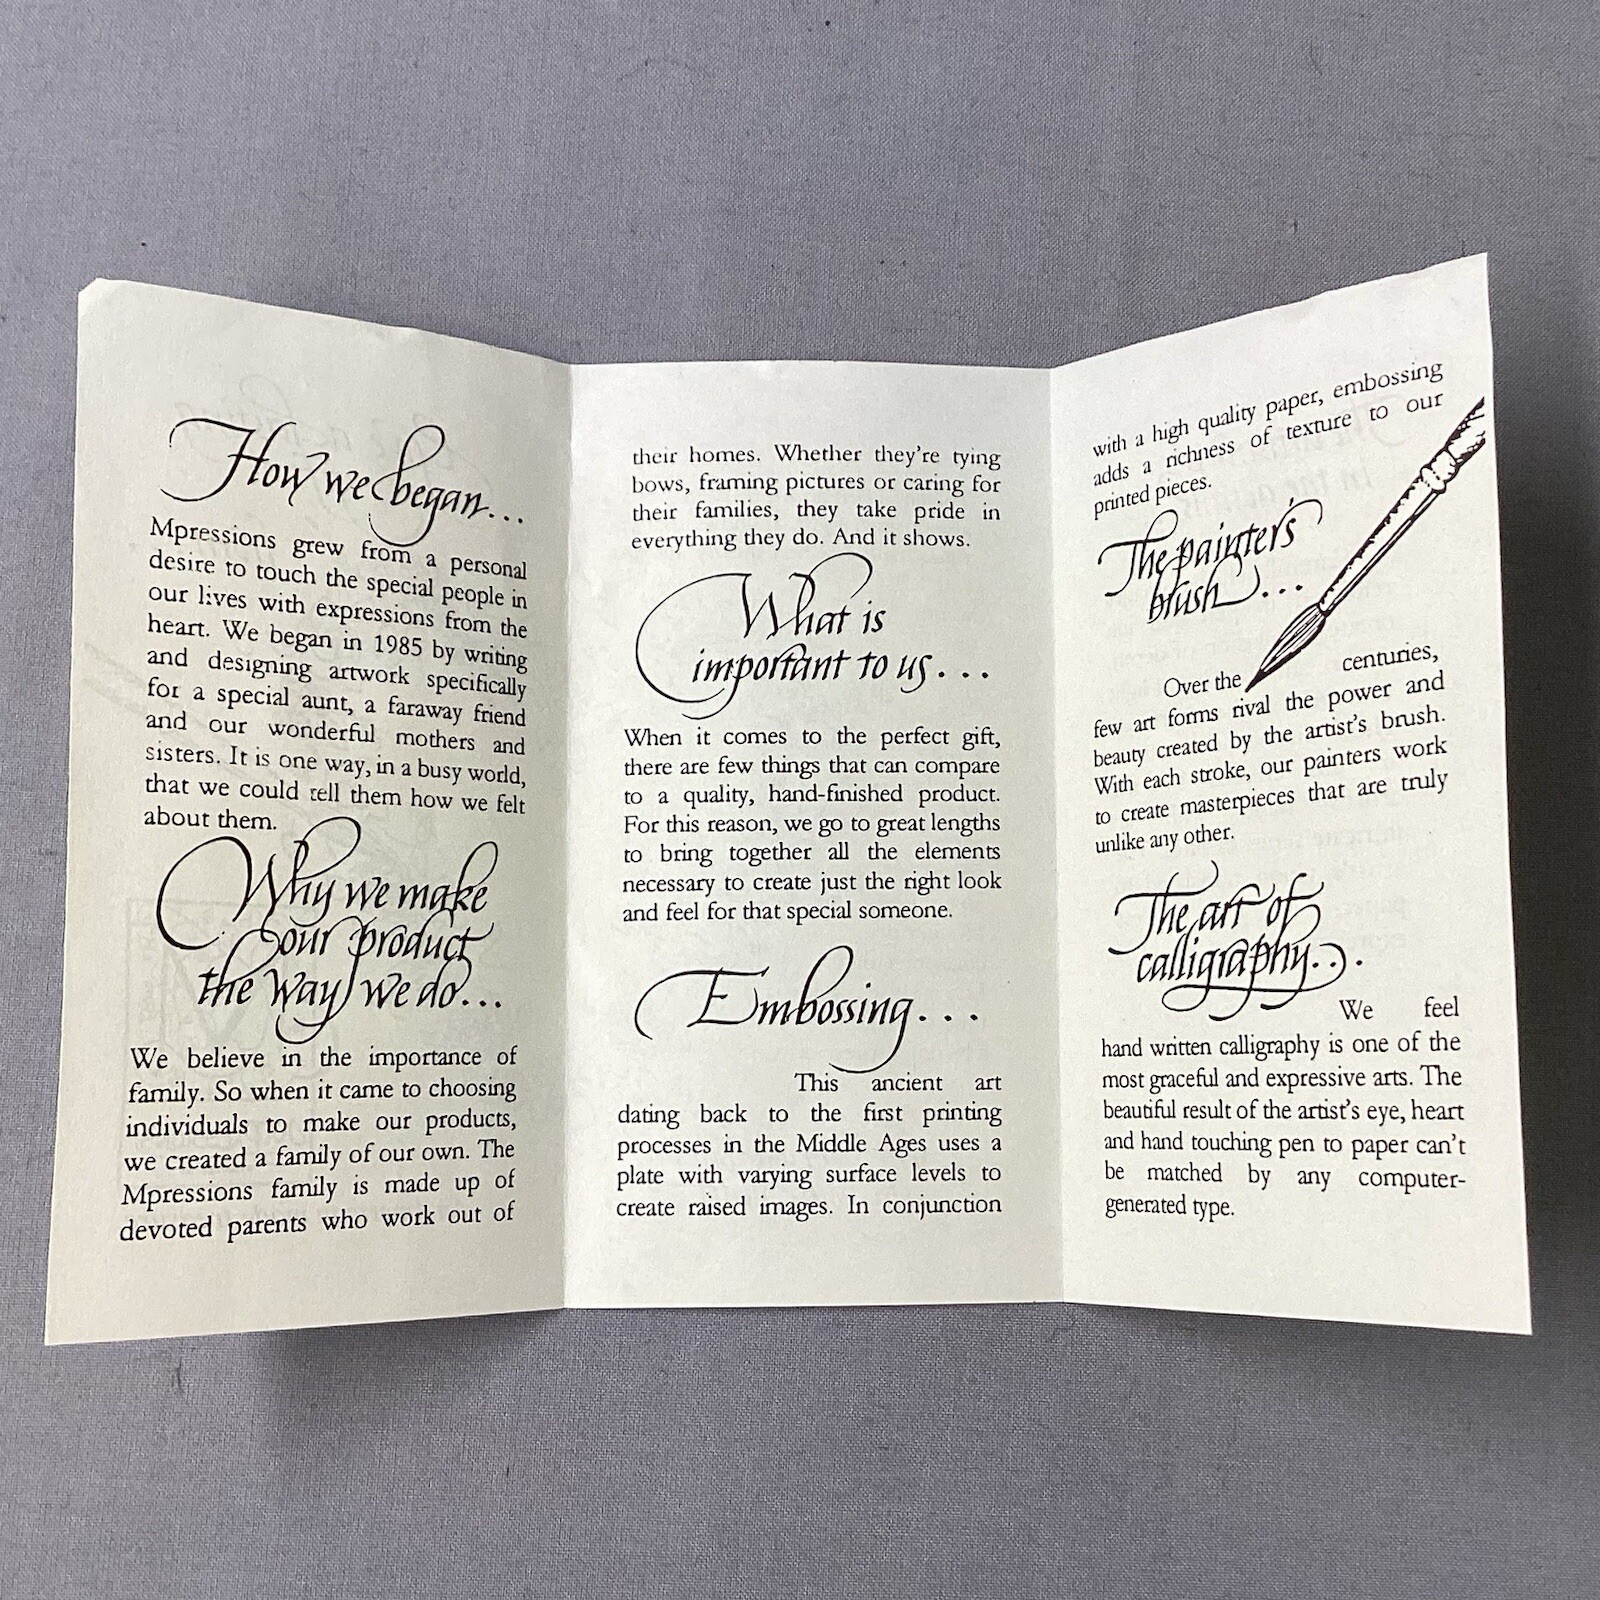 How we began...
Mpressions grew from a personal
desire to touch the special people in
our lives with expressions from the
heart. We began in 1985 by writing
and designing artwork specifically
for a special aunt, a faraway friend
and our wonderful mothers and
sisters. It is one way, in a busy world,
that we could tell them how we felt
about them.
Why we make
our product
the way we do...
We believe in the importance of
family. So when it came to choosing
individuals to make our products,
we created a family of our own. The
Mpressions family is made up of
devoted parents who work out of
their homes. Whether they're tying
bows, framing pictures or caring for
their families, they take pride in
everything they do. And it shows.
What is
important to us...
When it comes to the perfect gift,
there are few things that can compare
to a quality, hand-finished product.
For this reason, we go to great lengths
to bring together all the elements
necessary to create just the right look
and feel for that special someone.
Embossing...
This ancient art
dating back to the first printing
processes in the Middle Ages uses a
plate with varying surface levels to
create raised images. In conjunction
with a high quality paper, embossing
adds a richness of texture to our
printed pieces.
The painter's
brush...
Over the centuries,
few art forms rival the power and
beauty created by the artist's brush.
With each stroke, our painters work
to create masterpieces that are truly
unlike any other.
The art of
calligraphy...
We feel
hand written calligraphy is one of the
most graceful and expressive arts. The
beautiful result of the artist's eye, heart
and hand touching pen to paper can't
be matched by any computer-
generated type.